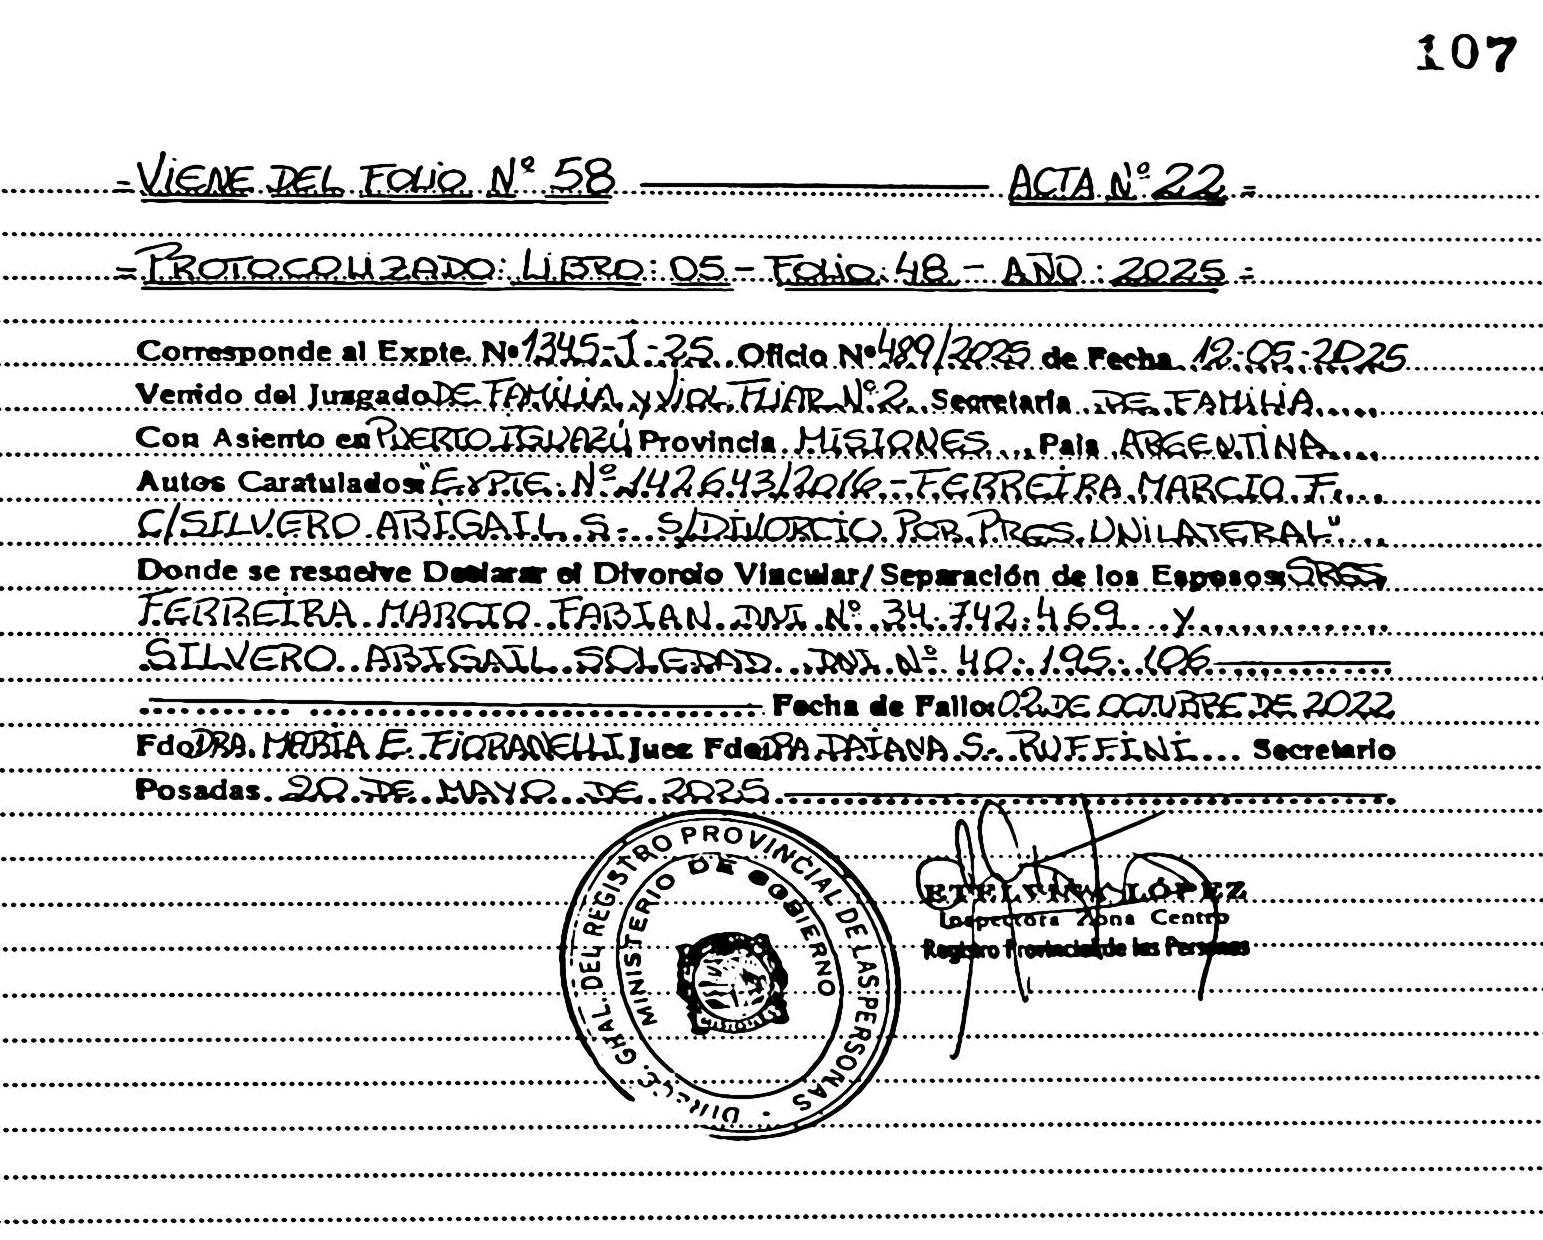 107
=VIENE DEL FOLIO Nº 58 ACTA Nº 22=
=PROTOCOLIZADO: LIBRO: 05 - FOLIO: 48 - AÑO: 2025=
Corresponde al Expte. Nº 1345-J-25. Oficio Nº 489/2025 de Fecha 12-05-2025
Venido del Juzgado DE FAMILIA y VIOL. FLIAR Nº 2. Secretaria DE FAMILIA
Con Asiento en PUERTO IGUAZÚ Provincia MISIONES País ARGENTINA
Autos Caratulados: "EXPTE. Nº 142.643/2016 - FERREIRA MARCIO F.
C/SILVERO ABIGAIL S. S/DIVORCIO POR PRES. UNILATERAL"
Donde se resuelve Declarar el Divorcio Vincular/Separación de los Esposos: SRES
FERREIRA MARCIO FABIAN DNI Nº 34.742.469 y
SILVERO ABIGAIL SOLEDAD DNI Nº 40.195.106
Fecha de Fallo: 02 DE OCTUBRE DE 2022
Fdo DRA. MARIA E. FIORANELLI Juez Fdo DRA DAIANA S. RUFFINI Secretario
Posadas 20 DE MAYO DE 2025
DIRECC. GRAL. DEL REGISTRO PROVINCIAL DE LAS PERSONAS
MINISTERIO DE GOBIERNO
MISIONES
ETELVINA LÓPEZ
Inspectora Zona Centro
Registro Provincial de las Personas